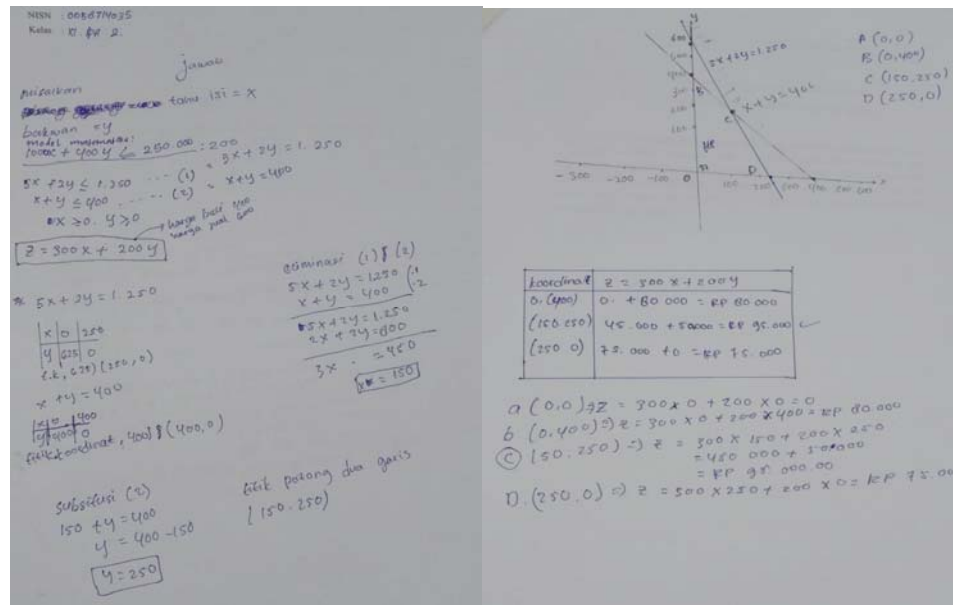 NISN : 0056714035
Kelas :
jawab
misalkan
tahu isi = x
bakwan = y
model matematika:
1000x + 400y ≤ 250.000 : 200
5x + 2y ≤ 1.250 ... (1) = 5x + 2y = 1.250
x + y ≤ 400 ... (2) = x + y = 400
x ≥ 0. y ≥ 0
harga beli 400
harga jual 600
Z = 300x + 200y
5x + 2y = 1.250
x 0 250
y 625 0
625) (250, 0)
x + y = 400
x 0 400
y 400 0
titik koordinat, 400) & (400,0)
eliminasi (1) & (2)
5x + 2y = 1250
x + y = 400
5x + 2y = 1.250
2x + 2y = 800
3x = 450
x = 150
subsitusi (2)
150 + y = 400
y = 400 - 150
y = 250
titik potong dua garis
(150. 250)
y
600
5x + 2y = 1.250
x + y = 400
B
C
HP
D
-300 -200 -100 0 100 400 500 600 x
A (0,0)
B (0,400)
C (150,250)
D (250,0)
koordinat Z = 300x + 200y
0. (400) 0. + 80 000 = RP 80 000
(150 250) 45.000 + 50000 = RP 95.000 ✓
(250 0) 75.000 + 0 = RP 75.000
a (0,0) => Z = 300 x 0 + 200 x 0 = 0
b (0,400) => Z = 300 x 0 + 200 x 400 = RP 80.000
C (150.250) => Z = 300 x 150 + 200 x 250
= 450 000 + 50.000
= RP 95 000.00
D. (250,0) => Z = 300 x 250 + 200 x 0 = RP 75.00